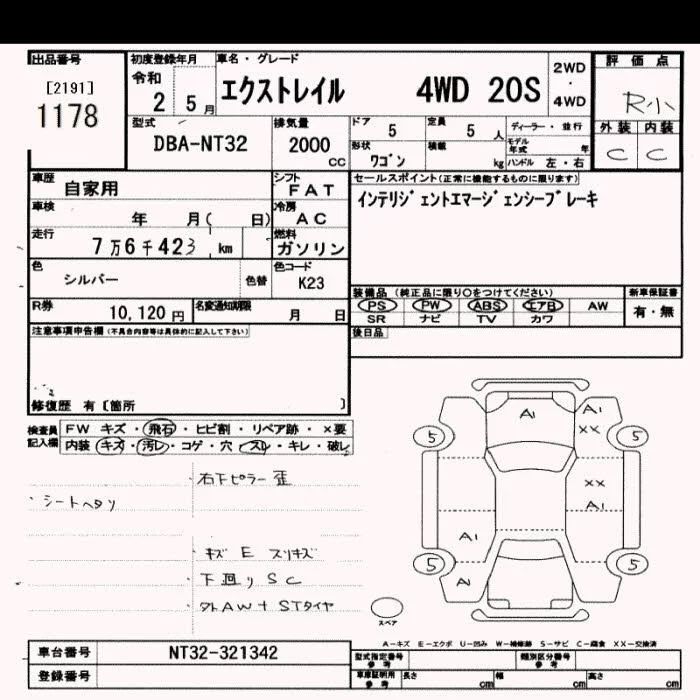 出品番号
[2191]
1178
初度登録年月
令和
2 5月
車名・グレード
エクストレイル 4WD 20S
2WD
・
4WD
評価点
R小
外装 内装
C C
型式
DBA-NT32
排気量
2000
CC
ドア
5
定員
5 人
ディーラー・並行
モデル年式 年
形状
ワゴン
積載
kg
ハンドル 左・右
車歴
自家用
シフト
FAT
セールスポイント(正常に機能するものに限ります)
インテリジェントエマージェンシーブレーキ
車検
年 月( 日)
冷房
AC
走行
7万6千423 km
燃料
ガソリン
色
シルバー
色替
色コード
K23
装備品(純正品に限り○をつけてください)
新車保証書
PS PW ABS エアB AW
有・無
SR ナビ TV カワ
R券
10,120円
名変通知期限
月 日
後日品
注意事項申告欄(不具合内容等は具体的に記入して下さい)
修復歴 有〔箇所 〕
検査員記入欄
FW キズ・飛石・ヒビ割・リペア跡・×要
内装 キズ・汚レ・コゲ・穴・スレ・キレ・破レ
・右下ピラー歪
・シートヘタリ
・キズ E スリキズ
・下回りSC
・外AW+STタイヤ
A1
A1
XX
5
5
XX
A1
A1
A1
5
5
スペア
A-キズ E-エクボ U-凹み W-補修跡 S-サビ C-腐食 XX-交換済
車台番号
NT32-321342
登録番号
型式指定番号
参考
類別区分番号
参考
車庫証明用
参考
長さ cm
幅 cm
高さ cm